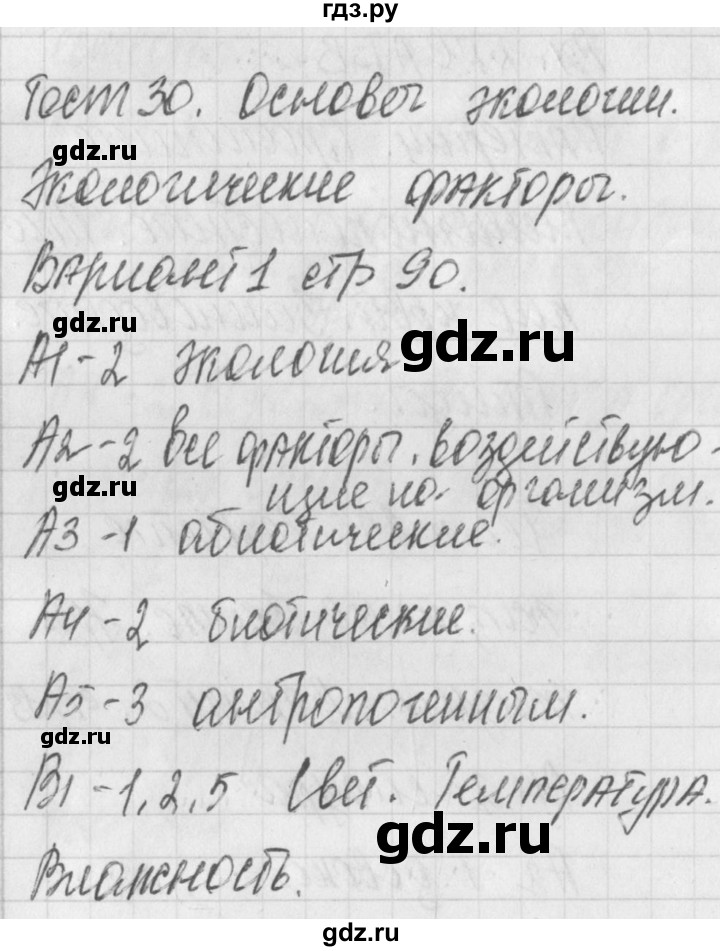 гдз.ру
Тест 30. Основы экологии.
gdz.ru
Экологические факторы.
Вариант 1 стр 90.
gdz.ru
gdz.ru
А1-2 экология
А2-2 все факторы, воздействую-
gdz.ru
щие на организм.
А3-1 абиотические.
А4-2 биотические.
А5-3 антропогенным.
gdz.ru
В1-1,2,5 Свет. Температура.
gdz.ru
Влажность.